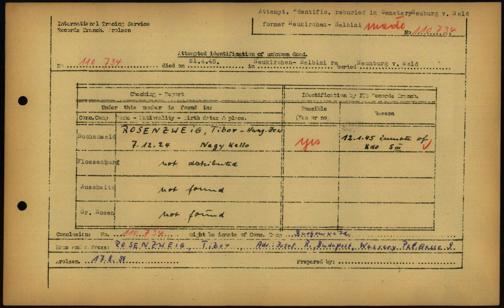 Attempt. Identific. reburied in Cemetery Neunburg v. Wald
International Tracing Service
Records Branch. Arolsen
former Neukirchen- Balbini
made
No 110.734
Attempted identification of unknown dead.
No. 110.734 died on 21.4.45. in Neukirchen-Balbini re Neunburg v. Wald
Checking - Report
Identification by ITS Records Branch.
Under this number is found in:
Possible
Reason
Conc.Camp
Name - Nationality - Birth date & place.
(Yes or no
Buchenwald
ROSENZWEIG, Tibor - Hung. Jew
7.12.24 Nagy Kallo
yes
12.1.45 inmate of
Kdo S III
Flossenburg
not distributed
Auschwitz
not found
Gr. Rosen
not found
Conclusion: No. 110.734 might be inmate of Conc. Camp Buchenwald
Name and Adress: ROSENZWEIG, Tibor
Budapest,
Arolsen, 17.
Prepared by: